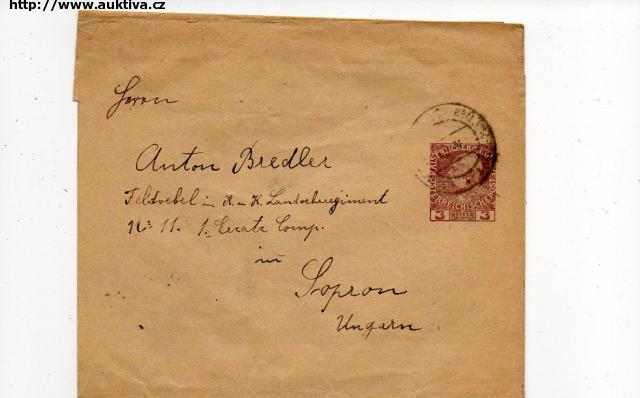 http://www.auktiva.cz
Herrn
Anton Bredler
Feldwebel in K. u. K. Landwehrregiment
No 11. 1. Ersatz Comp.
in
Sopron
Ungarn
3 HELLER 3